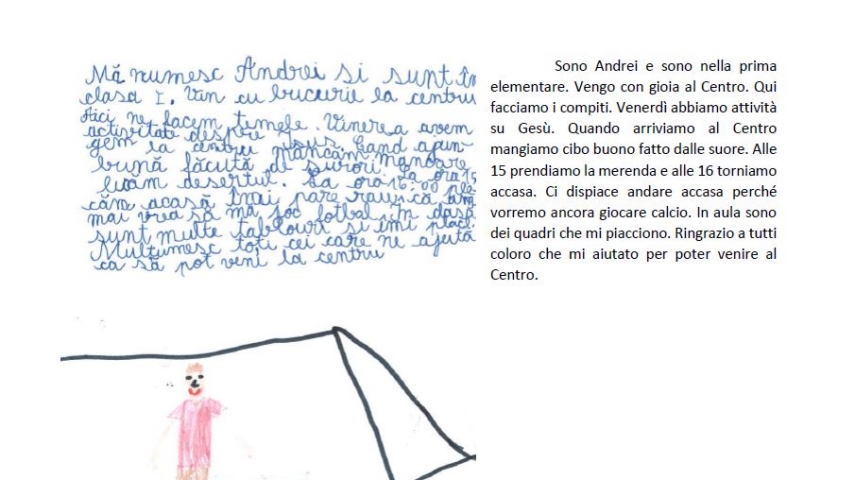 Mă numesc Andrei si sunt în
clasa I. Vin cu bucurie la centru
Aici ne facem temele. Vinerea avem
activitate despre Isus. Cand ajun-
gem la centru mâncăm mancare
bună făcută de surori. La ora 15
luăm desertul. La ora 16:00 ple
căm acasă îmi pare rau că am
mai vrea să mă joc fotbal. In
sunt multe tablouri si îmi plac.
Multumesc toti cei care ne ajută
ca să pot veni la centru
Sono Andrei e sono nella prima
elementare. Vengo con gioia al Centro. Qui
facciamo i compiti. Venerdì abbiamo attività
su Gesù. Quando arriviamo al Centro
mangiamo cibo buono fatto dalle suore. Alle
15 prendiamo la merenda e alle 16 torniamo
accasa. Ci dispiace andare accasa perché
vorremo ancora giocare calcio. In aula sono
dei quadri che mi piacciono. Ringrazio a tutti
coloro che mi aiutato per poter venire al
Centro.